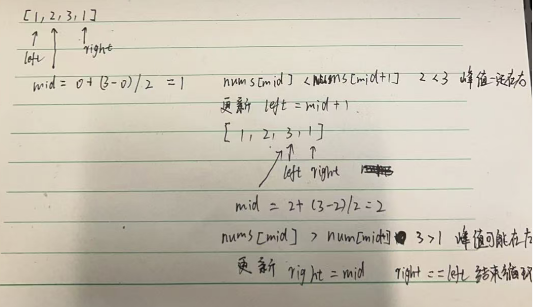 [1,2,3,1]
left right
mid = 0+(3-0)/2 = 1 nums[mid] < nums[mid+1] 2<3 峰值一定在右
更新 left = mid+1
[1,2,3,1]
left right
mid = 2+(3-2)/2=2
nums[mid] > num[mid+] 3>1 峰值可能在左
更新 right = mid right == left 结束循环